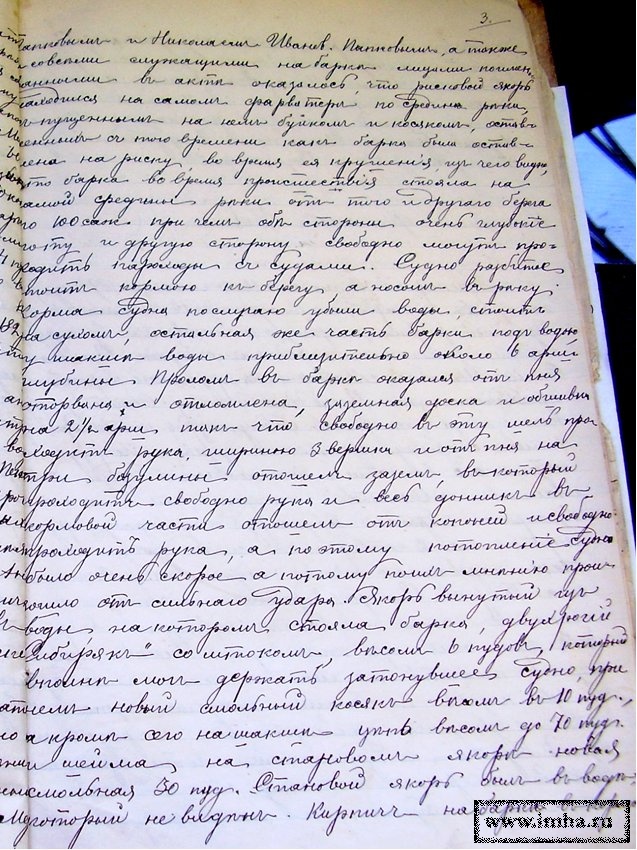 3.
Папковымъ и Николаемъ Иванов. Папковымъ, а также
и совсѣми служащими на баркѣ лицами поимен
анными въ актѣ оказалось, что рисковой якорь
находился на самомъ фарватерѣ по срединѣ рѣки,
съ пущеннымъ на немъ буйкомъ и косякомъ, остав-
леннымъ съ того времени какъ барка была остав-
лена на риску, во время ея крушенія, изъ чего видно,
что барка во время происшествія стояла на
самой срединѣ рѣки отъ того и другаго берега
по 100 саж. при чемъ обѣ стороны очень глубоки
и въ ту и другую сторону свободно могутъ про-
ходить пароходы съ судами. Судно разбитое
стоитъ кормою къ берегу а носомъ въ рѣку.
Корма судна по случаю убыли воды, стоитъ
на сухомъ, остальная же часть барки подъ водою
воды приблизительно около 6 арш.
глубины. Проломъ въ баркѣ оказался отъ пня
оторвана и отломлена, заземная доска и обшивка
на 2½ арш. такъ что свободно въ эту щель про-
ходитъ рука, шириною 3 вершка и отъ пня на
три отошелъ заземъ, въ который
проходитъ свободно рука и весь донникъ въ
кормовой части отошелъ отъ коконей и свободно
проходитъ рука, а по этому потопленіе судна
было очень скорое а потому по ихъ мнѣнію прои-
зошло отъ сильнаго удара. Якорь вынутый изъ
воды, на которомъ стояла барка, двухрогій
„Сибирякъ“ со штокомъ, вѣсомъ 6 пудовъ, который
вполнѣ могъ держать затонувшее судно, при
новый смольный косякъ вѣсомъ въ 10 пуд.,
а кромѣ сего на вѣсомъ до 70 пуд.
шейма на становомъ якорѣ новая
смольная 30 пуд. Становой якорь былъ въ водѣ
который не видѣнъ. Кирпичъ на баркѣ
www.imha.ru